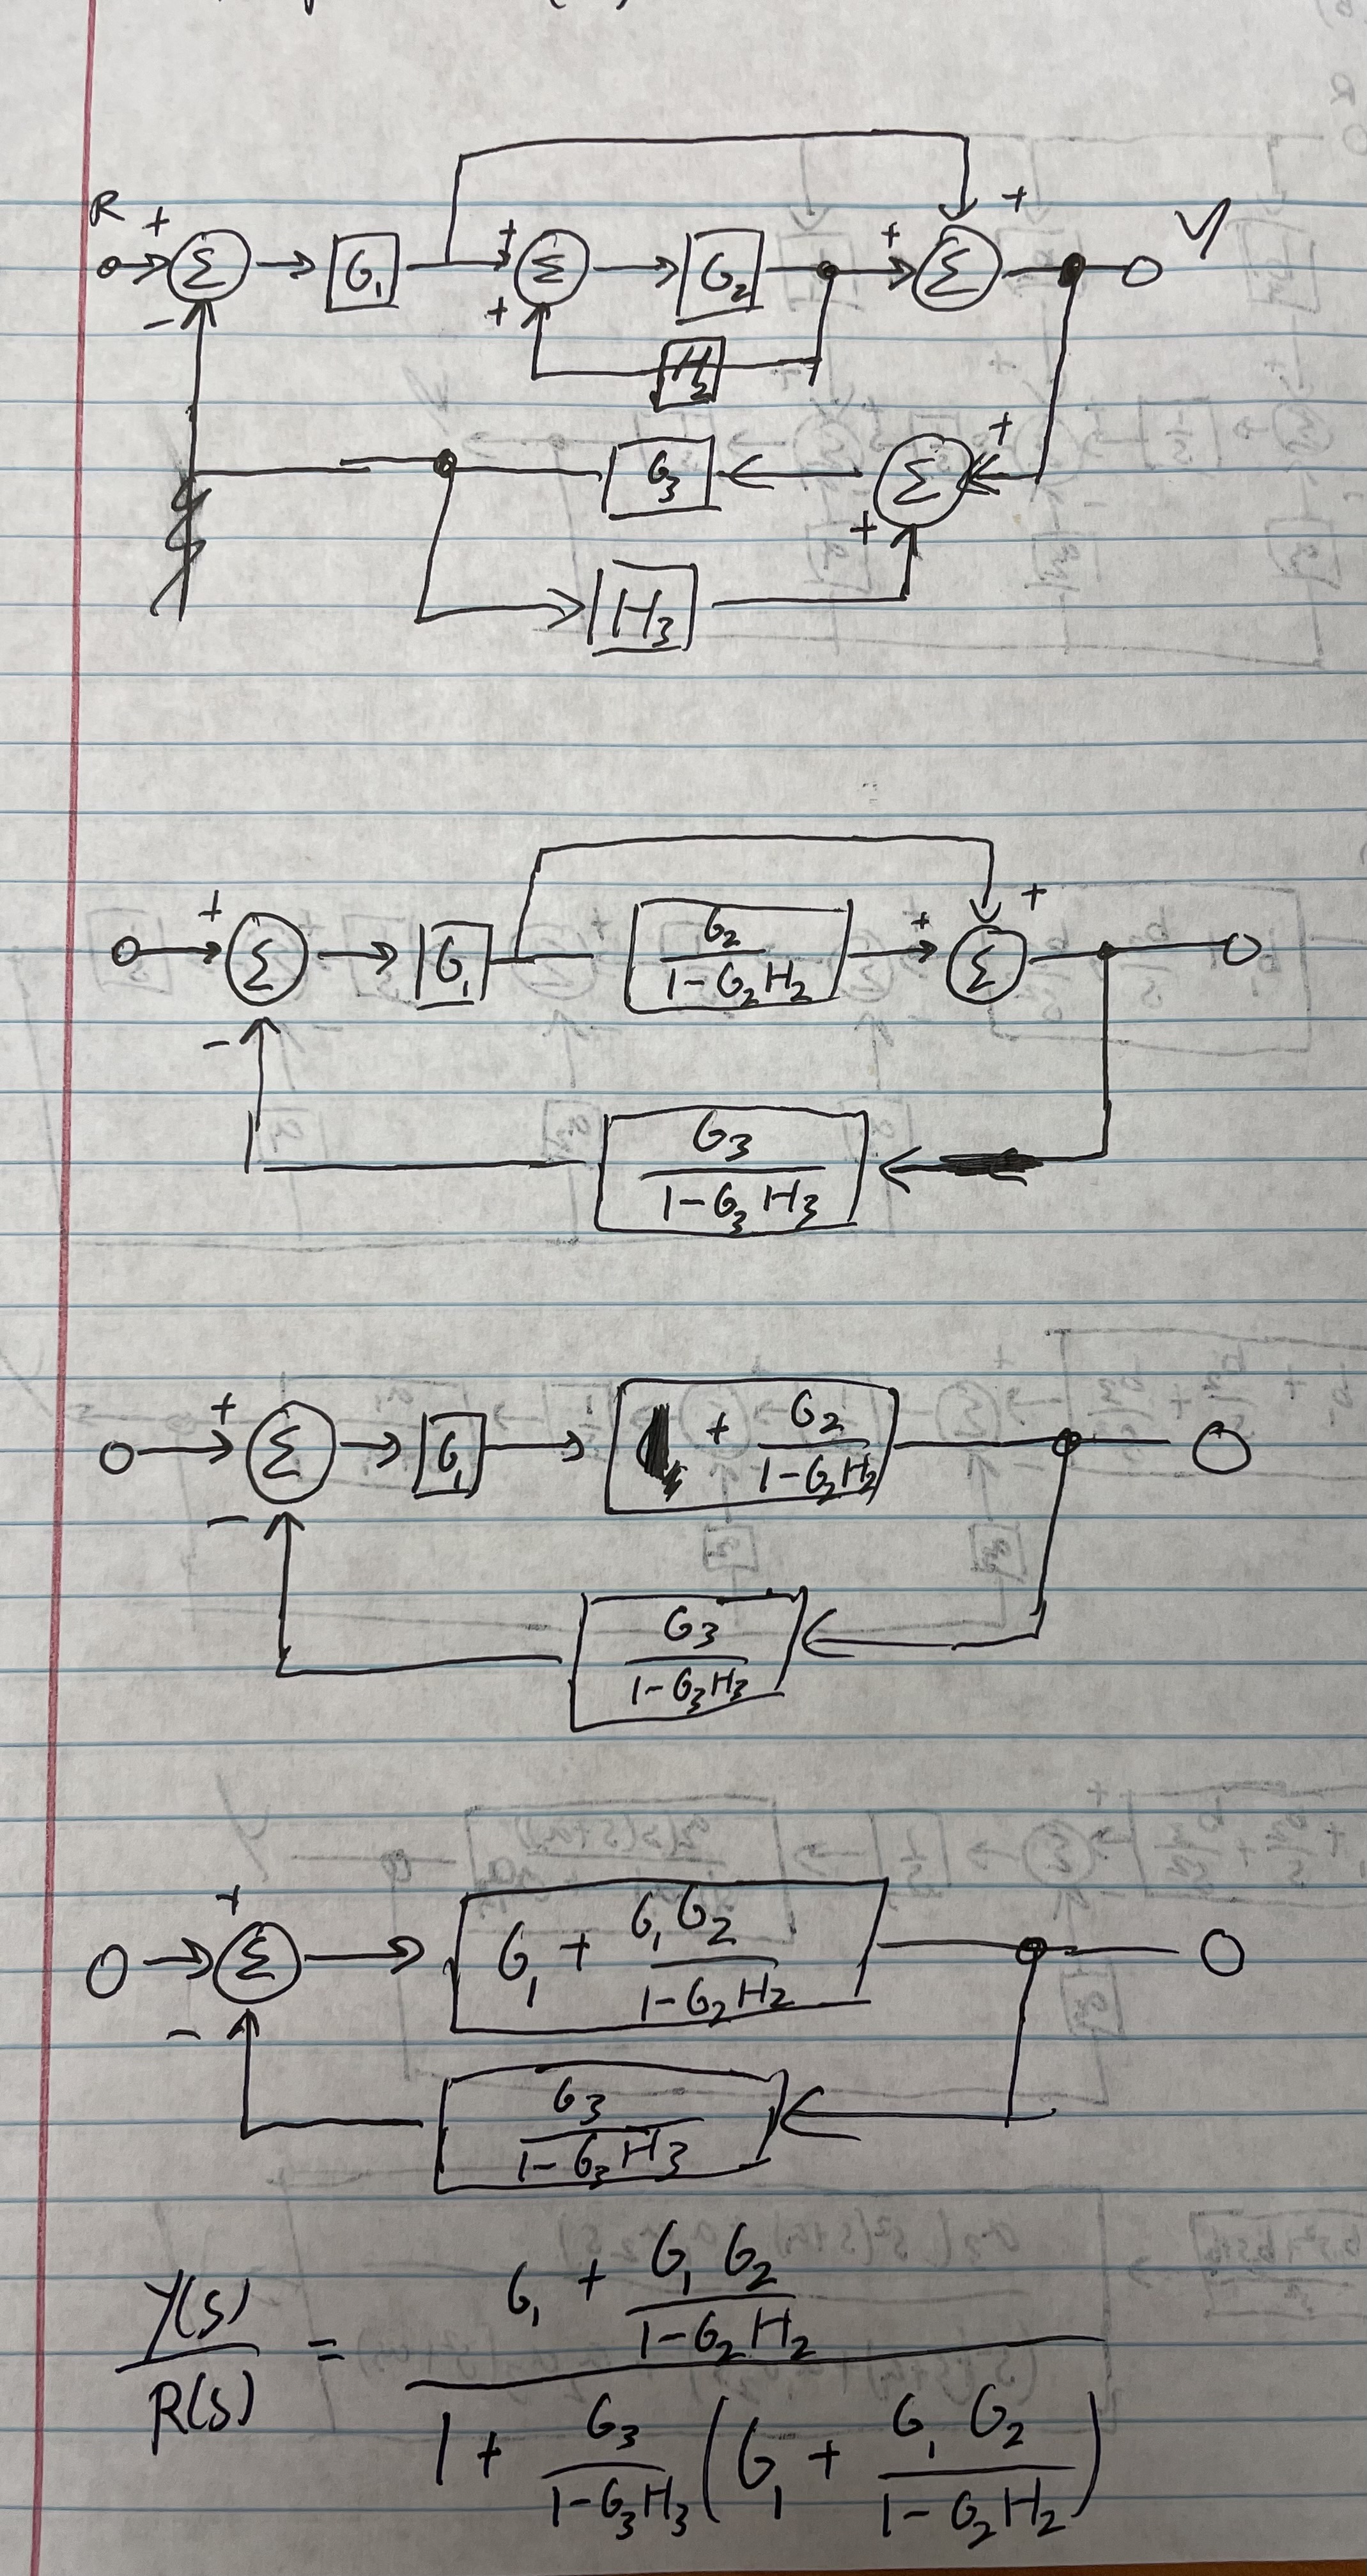 R + + + + Y
Σ G₁ Σ G₂ Σ
- +
H₂
+
G₃ Σ
+
H₃
+ + +
Σ G₁ G₂/(1-G₂H₂) Σ
-
G₃/(1-G₃H₃)
+
Σ G₁ 1 + G₂/(1-G₂H₂)
-
G₃/(1-G₃H₃)
+
Σ G₁ + G₁G₂/(1-G₂H₂)
-
G₃/(1-G₃H₃)
Y(s)/R(s) = (G₁ + G₁G₂/(1-G₂H₂)) / (1 + G₃/(1-G₃H₃) (G₁ + G₁G₂/(1-G₂H₂)))